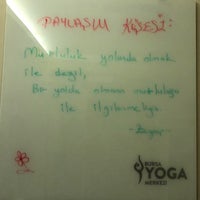 PAYLAŞIM KÖŞESİ:
Mutluluk yolunda olmak
ile değil,
Bir yolda olmanın mutluluğu
ile ilgilenmeliyiz.
BURSA
YOGA
MERKEZİ